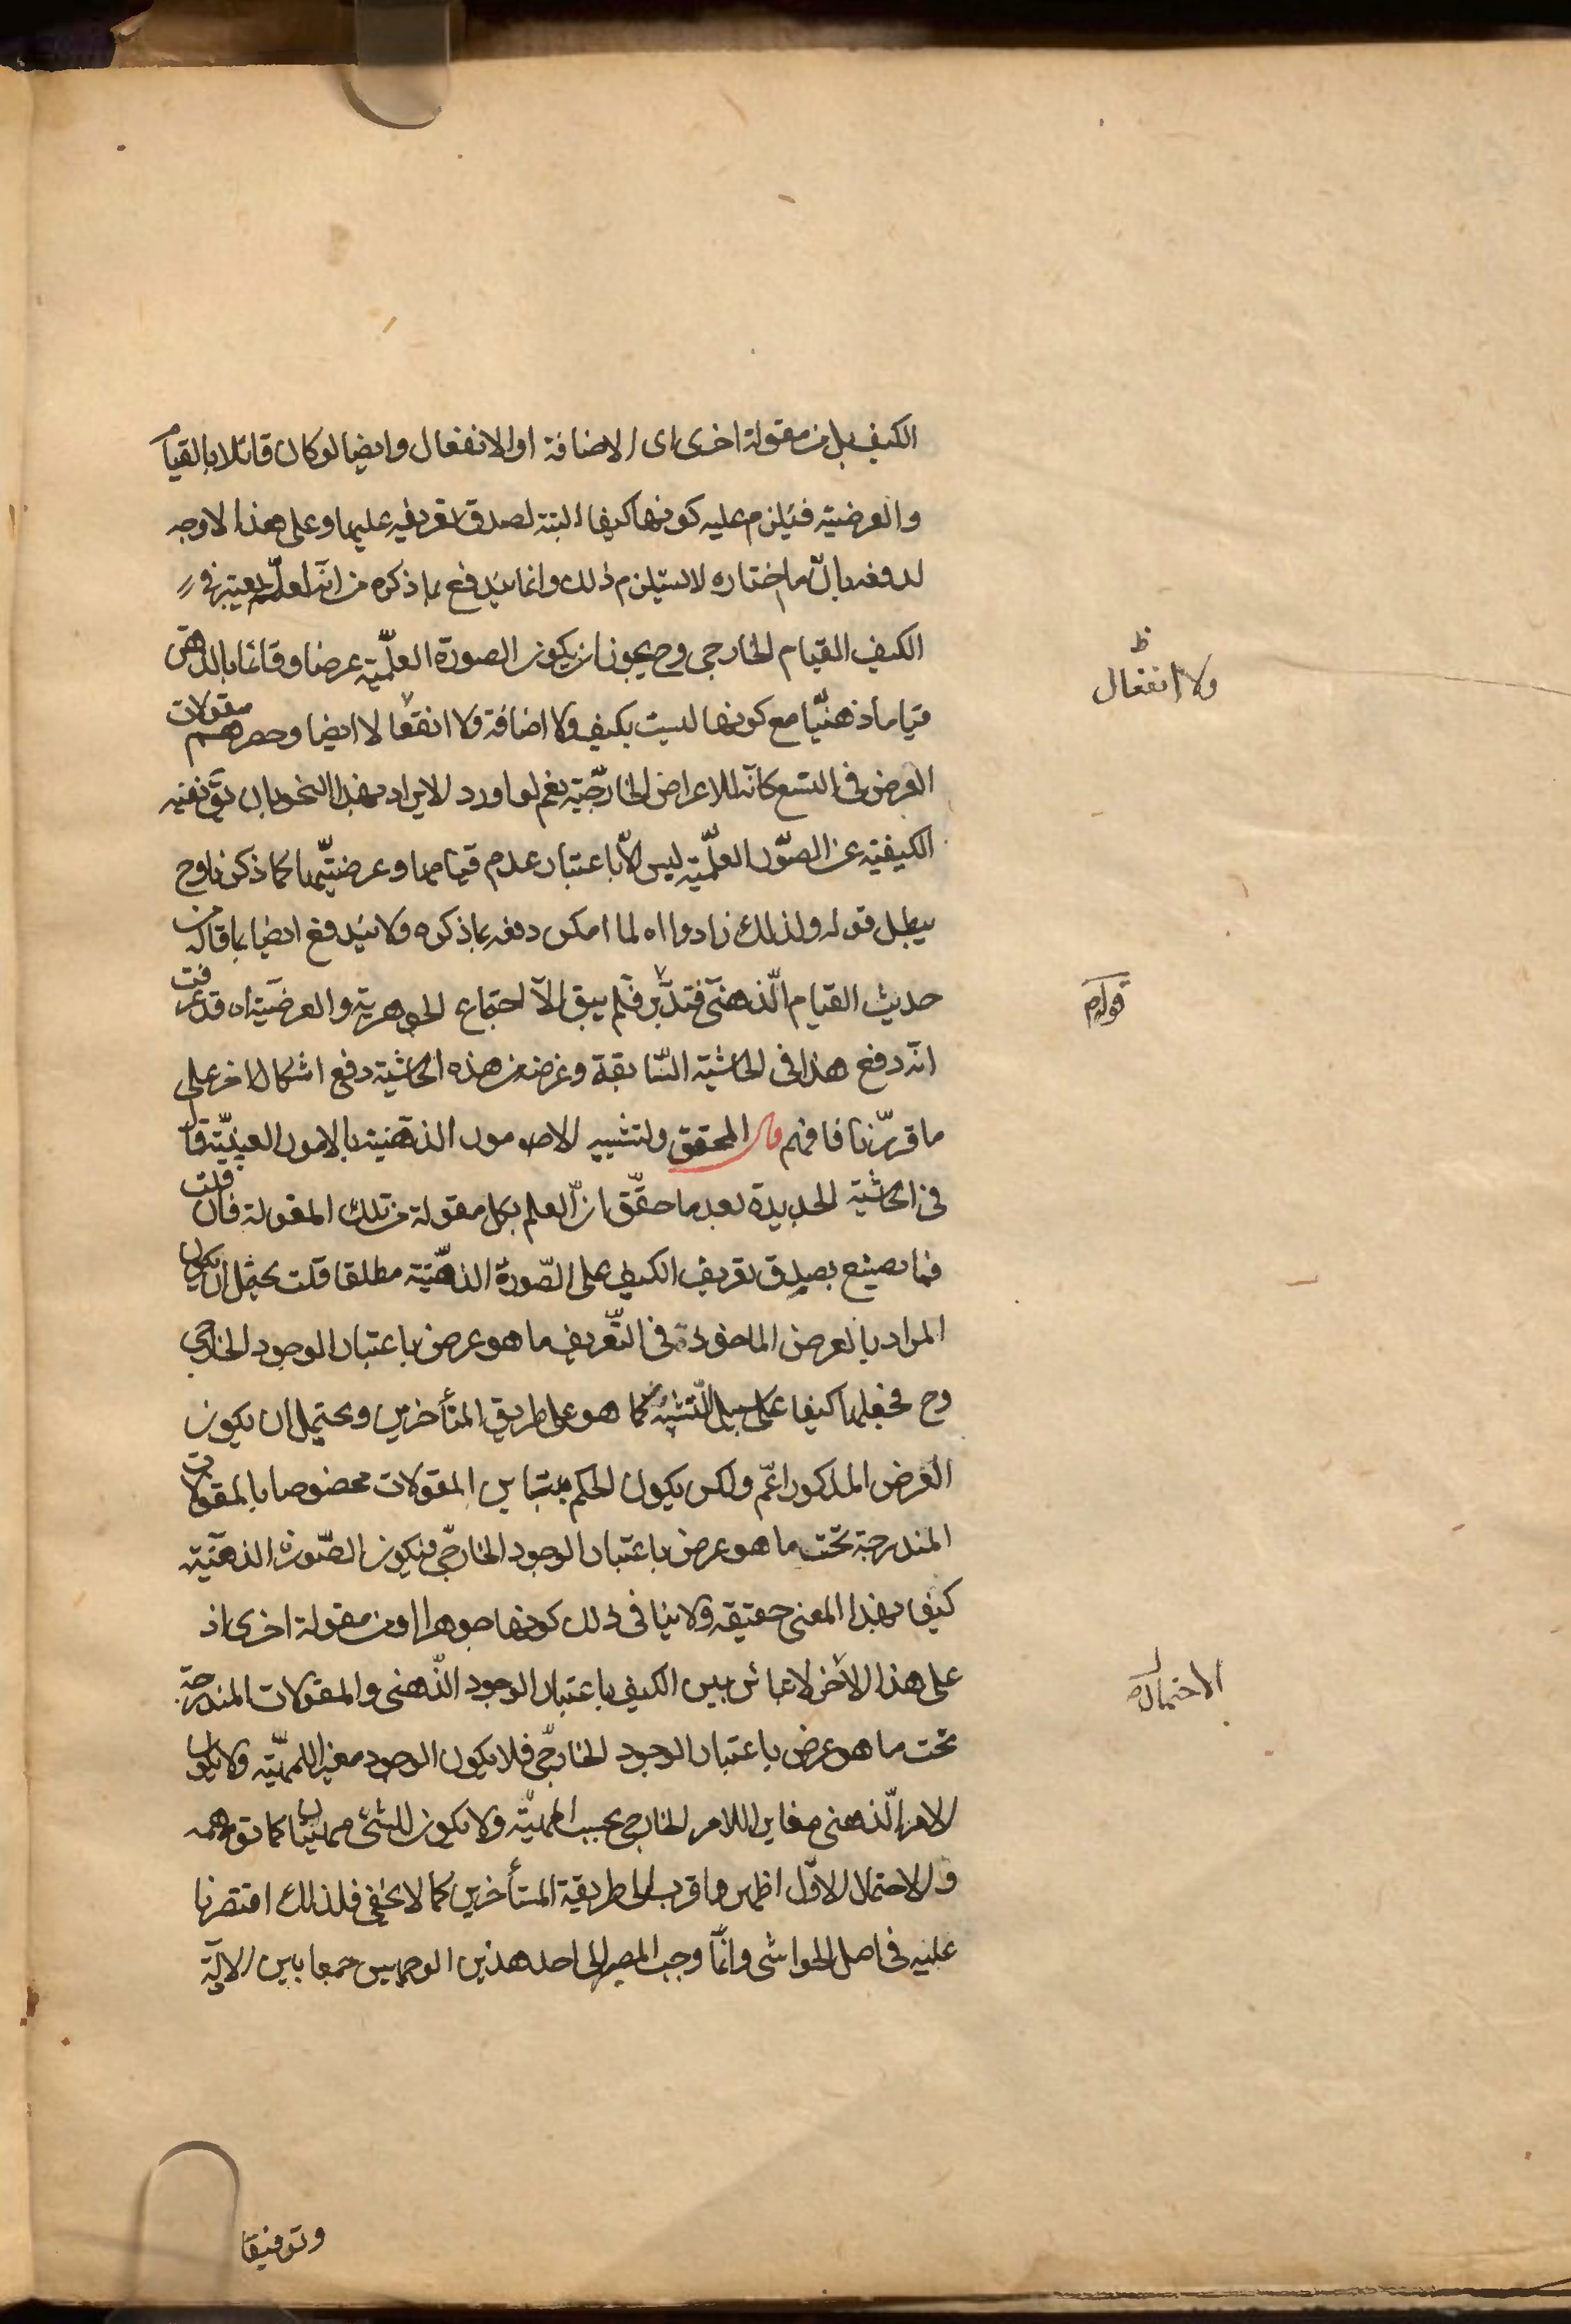 الكيف بل من مقولة اخرى اى الاضافة او الانفعال وايضا لو كان قائلا بالقيام
والعرضية فيلزم عليه كونها كيفا البتة لصدق تعريفه عليها وعلى هذا لا وجه
لدفعه بان ما اختاره لا يستلزم ذلك وانما يندفع بما ذكره من انه لعله يعتبر في
الكيف القيام الخارجى وح يجوز ان يكون الصورة العلمية عرضا وقائما بالذهن
قياما ذهنيا مع كونها ليست بكيف ولا اضافة ولا انفعالا ايضا وحصرهم مقولات
العرض فى التسع كانه للاعراض الخارجية نعم لو اورد الايراد بهذا النحو بان يق نفيه
الكيفية عن الصور العلمية ليس الا باعتبار عدم قيامها وعرضيتها كما ذكرنا وح
يبطل قوله ولذلك زادوا اه لما امكن دفعه بما ذكره ولا يندفع ايضا بما قاله من
حديث القيام الذهنى فتدبر فلم يبق الا اجتماع الجوهرية والعرضية اه قد عرفت
انه دفع هذا فى الحاشية السابقة وغرضه من هذه الحاشية دفع اشكال اخر على
ما قررنا فافهم قال المحقق ولتشبيه الامور الذهنية بالامور العينية قال
فى الحاشية الجديدة بعد ما حقق ان العلم بكل مقولة من تلك المقولة فان قلت
فما يصنع بصدق تعريف الكيف على الصورة الذهنية مطلقا قلت يحتمل ان يكون
المراد بالعرض الماخوذ فى التعريف ما هو عرض باعتبار الوجود الخارجى
وح فجعلها كيفا على سبيل التشبيه كما هو على طريق المتأخرين ويحتمل ان يكون
العرض المذكور اعم ولكن يكون الحكم بتباين المقولات مخصوصا بالمقولات
المندرجة تحت ما هو عرض باعتبار الوجود الخارجى فيكون الصورة الذهنية
كيف بهذا المعنى حقيقة ولا ينافى ذلك كونها جوهرا او من مقولة اخرى اذ
على هذا الاخر لا تباين بين الكيف باعتبار الوجود الذهنى والمقولات المندرجة
تحت ما هو عرض باعتبار الوجود الخارجى فلا يكون الوجود مغيرا للمهية ولا يكون
الامر الذهنى مغايرا للامر الخارجى بحسب المهية ولا يكون للشئ مهيتان كما توهمه
والاحتمال الاول اظهر واقرب الى طريقة المتأخرين كما لا يخفى فلذلك اقتصرنا
عليه فى اصل الحواشى وانما وجب المصير الى احد هذين الوجهين جمعا بين الادلة
وتوفيقا
ظ
ولا انفعال
قوله
الاحتمال